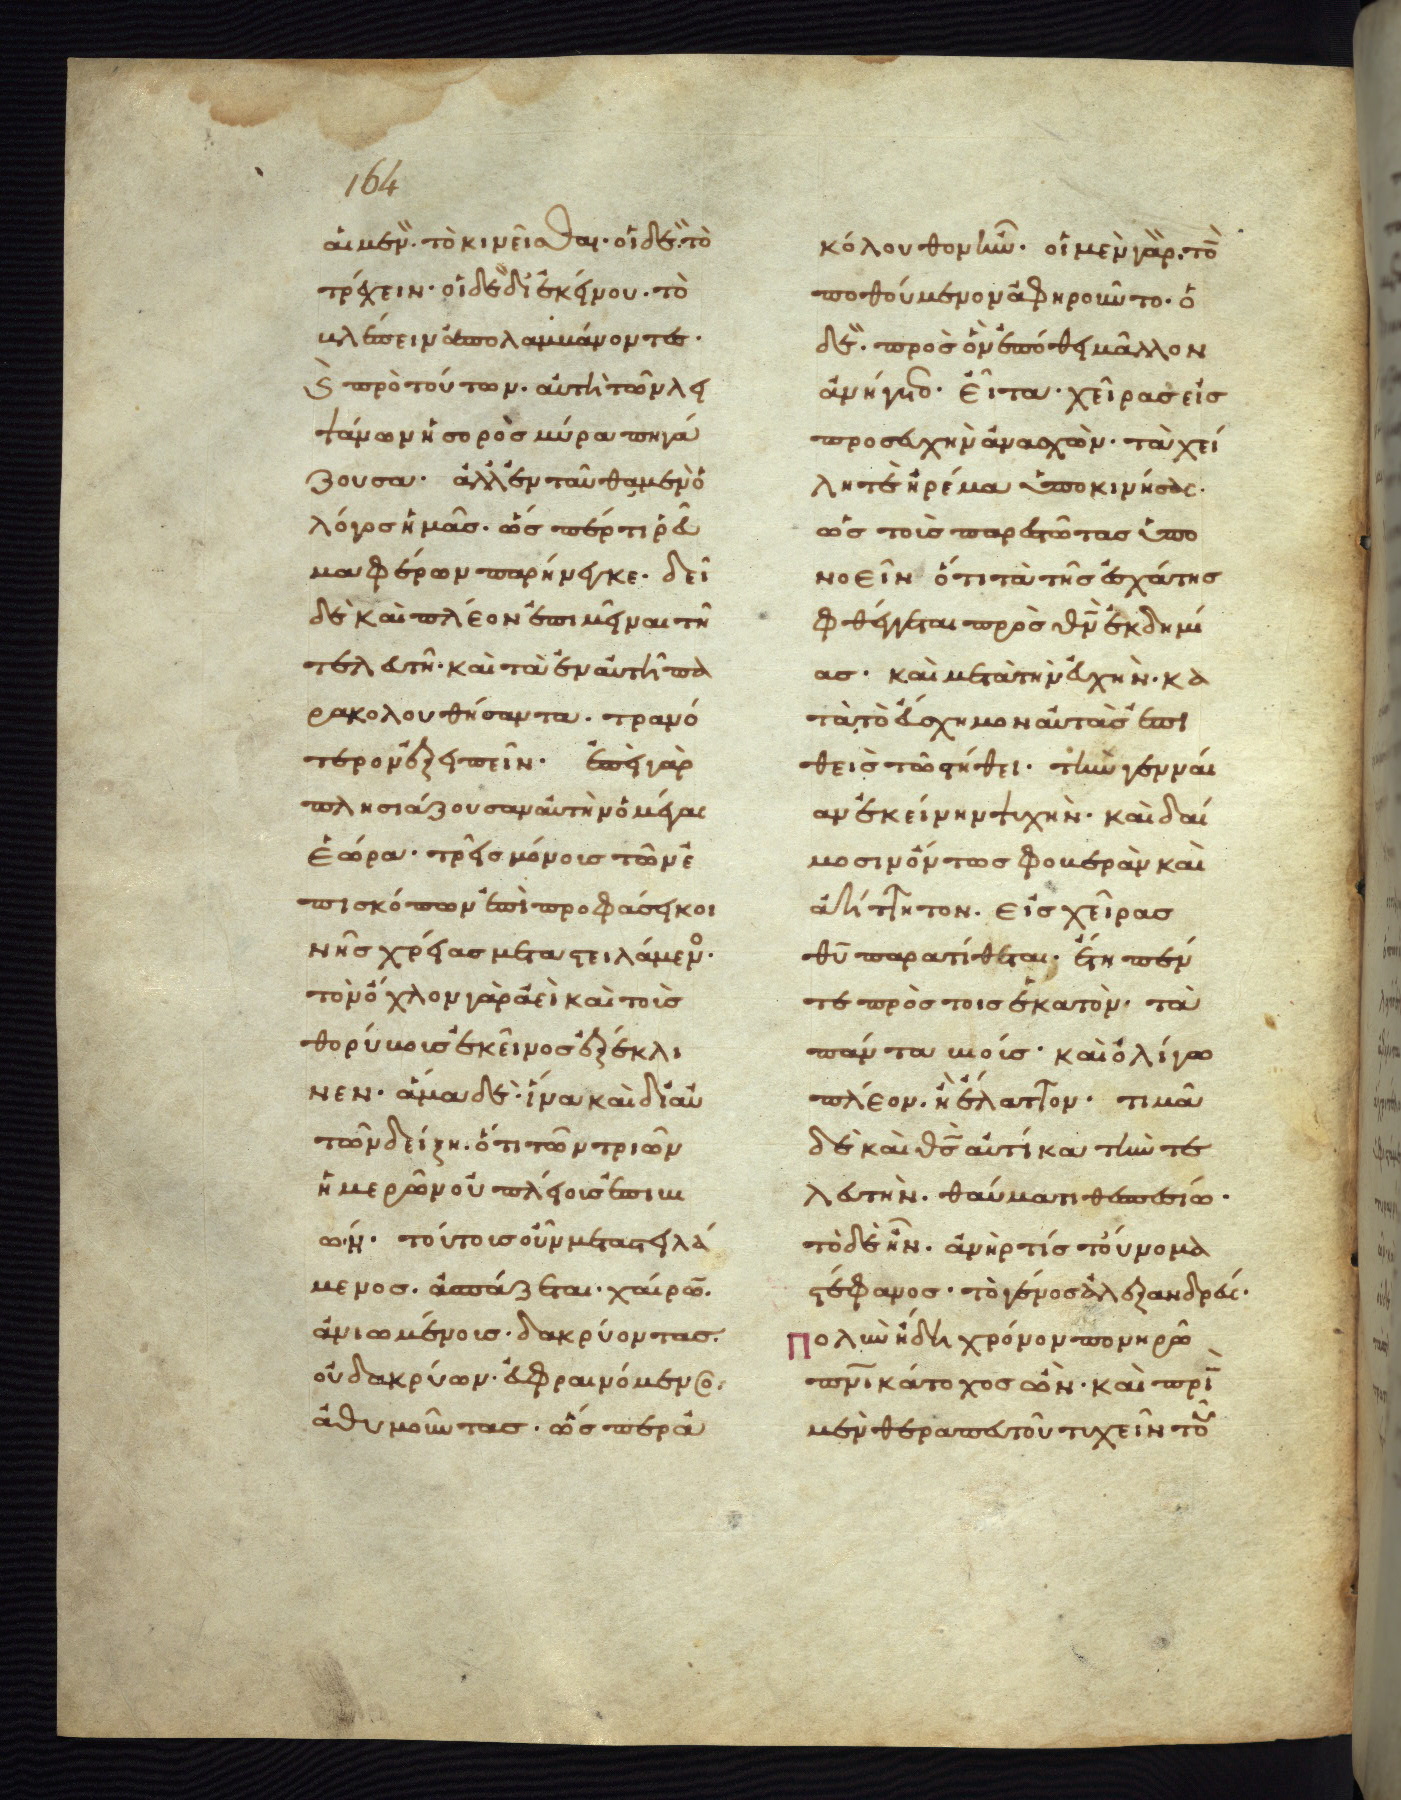 οἱ μὲν. τὸ κινεῖσθαι. οἱ δὲ. τὸ
τρέχειν. οἱ δὲ δι᾿ ἐκείνου. τὸ
βλέπειν ἀπολαμβάνοντες.
καὶ πρὸ τούτων. αὐτὴ τῶν λει
ψάνων ἡ σορὸς μύρα πηγά
ζουσα. ἀλλ᾿ ἐνταῦθα μὲν ὁ
λόγος ἡμᾶς. ὥς πέρ τι ῥεῦ
μα φέρων παρήνεγκε. δεῖ
δὲ καὶ πλέον ἐπιμεῖναι τῆ
τελευτῆ. καὶ τὰ ἐν αὐτῆ πα
ρακολουθήσαντα. τρανό
τερον ἐξειπεῖν. ἐπεὶ γὰρ
πλησιάζουσαν αὐτὴν ὁ μέγας
ἑώρα. τρεῖς μόνους τῶν ἐ
πισκόπων ἐπὶ προφάσει κοι
νῆς χρείας μεταστειλάμενος.
τὸν ὄχλον γὰρ ἀεὶ καὶ τοὺς
θορύβους ἐκεῖνος ἐξέκλι
νεν. ἅμα δὲ. ἵνα καὶ δι᾿ αὐ
τῶν δείξη. ὅτι τῶν τριῶν
ἡμερῶν οὐ πλείους ἐπιβι
ώη. τούτους οὖν μεταστειλά
μενος. ἀσπάζεται. χαίρων.
ἀνιωμένους. δακρύοντας.
οὐ δακρύων. εὐφραινόμενος.
ἀθυμοῦντας. ὥς περ ἀ
κόλουθον ἦν. οἱ μὲν γὰρ. τὸν
ποθούμενον ἀφηροῦντο. ὁ
δὲ. πρὸς ὃν ἐπόθει μᾶλλον
ἀνήγετο. εἶτα. χεῖρας εἰς
προσευχὴν ἀνασχὼν. τὰ χεί
λη τὲ ἠρέμα ὑποκινήσας.
ὡς τοὺς παρεστῶτας ὑπο
νοεῖν ὅτι τὰ τῆς ἐσχάτης
φθέγγεται πρὸς θν̅ ἐκδημί
ας. καὶ μετὰ τὴν εὐχὴν. κα
τὰ τὸ εὔσχημον αὐτὰς ἐπι
θεὶς τῶ στήθει. τὴν γενναί
αν ἐκείνην ψυχὴν. καὶ δαί
μοσιν ὄντως φοβερὰν καὶ
ἀήττητον. εἰς χεῖρας
θυ̅ παρατίθεται. ἔτη πέν
τε πρὸς τοῖς ἑκατὸν. τὰ
πάντα βιούς. καὶ ὀλίγω
πλέον. ἢ ἔλαττον. τιμᾶ
δὲ καὶ θς̅ αὐτίκα τὴν τε
λευτὴν. θαύματι θεσπεσίω.
τὸ δὲ ἦν. ἀνὴρ τίς τοὔνομα
στέφανος. τὸ γένος ἀλεξανδρεύς.
Πολὺν ἤδη χρόνον πονηρῶ
πνι̅ κάτοχος ὢν. καὶ πρὶν
μὲν θεραπευτοῦ τυχεῖν τοῦ
164